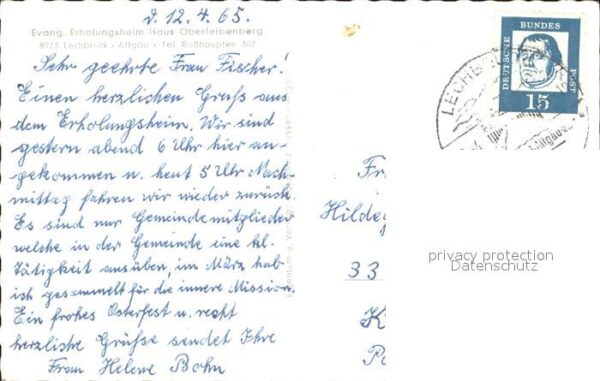 d. 12.4.65.
Evang. Erholungsheim Haus Oberleibenberg
8923 Lechbruck - Allgäu - Tel. Roßhaupten 307
Sehr geehrte Frau Fischer!
Einen herzlichen Gruß aus
dem Erholungsheim. Wir sind
gestern abend 6 Uhr hier an-
gekommen u. heut 5 Uhr Nach-
mittag fahren wir wieder zurück.
Es sind nur Gemeindemitglieder
welche in der Gemeinde eine kl.
Tätigkeit ausüben, im März hab
ich gesammelt für die innere Mission.
Ein frohes Osterfest u. recht
herzliche Grüße sendet Ihre
Frau Helene Bohn
DEUTSCHE BUNDES POST
15
Fr
Hildeg
33
K
privacy protection
Datenschutz